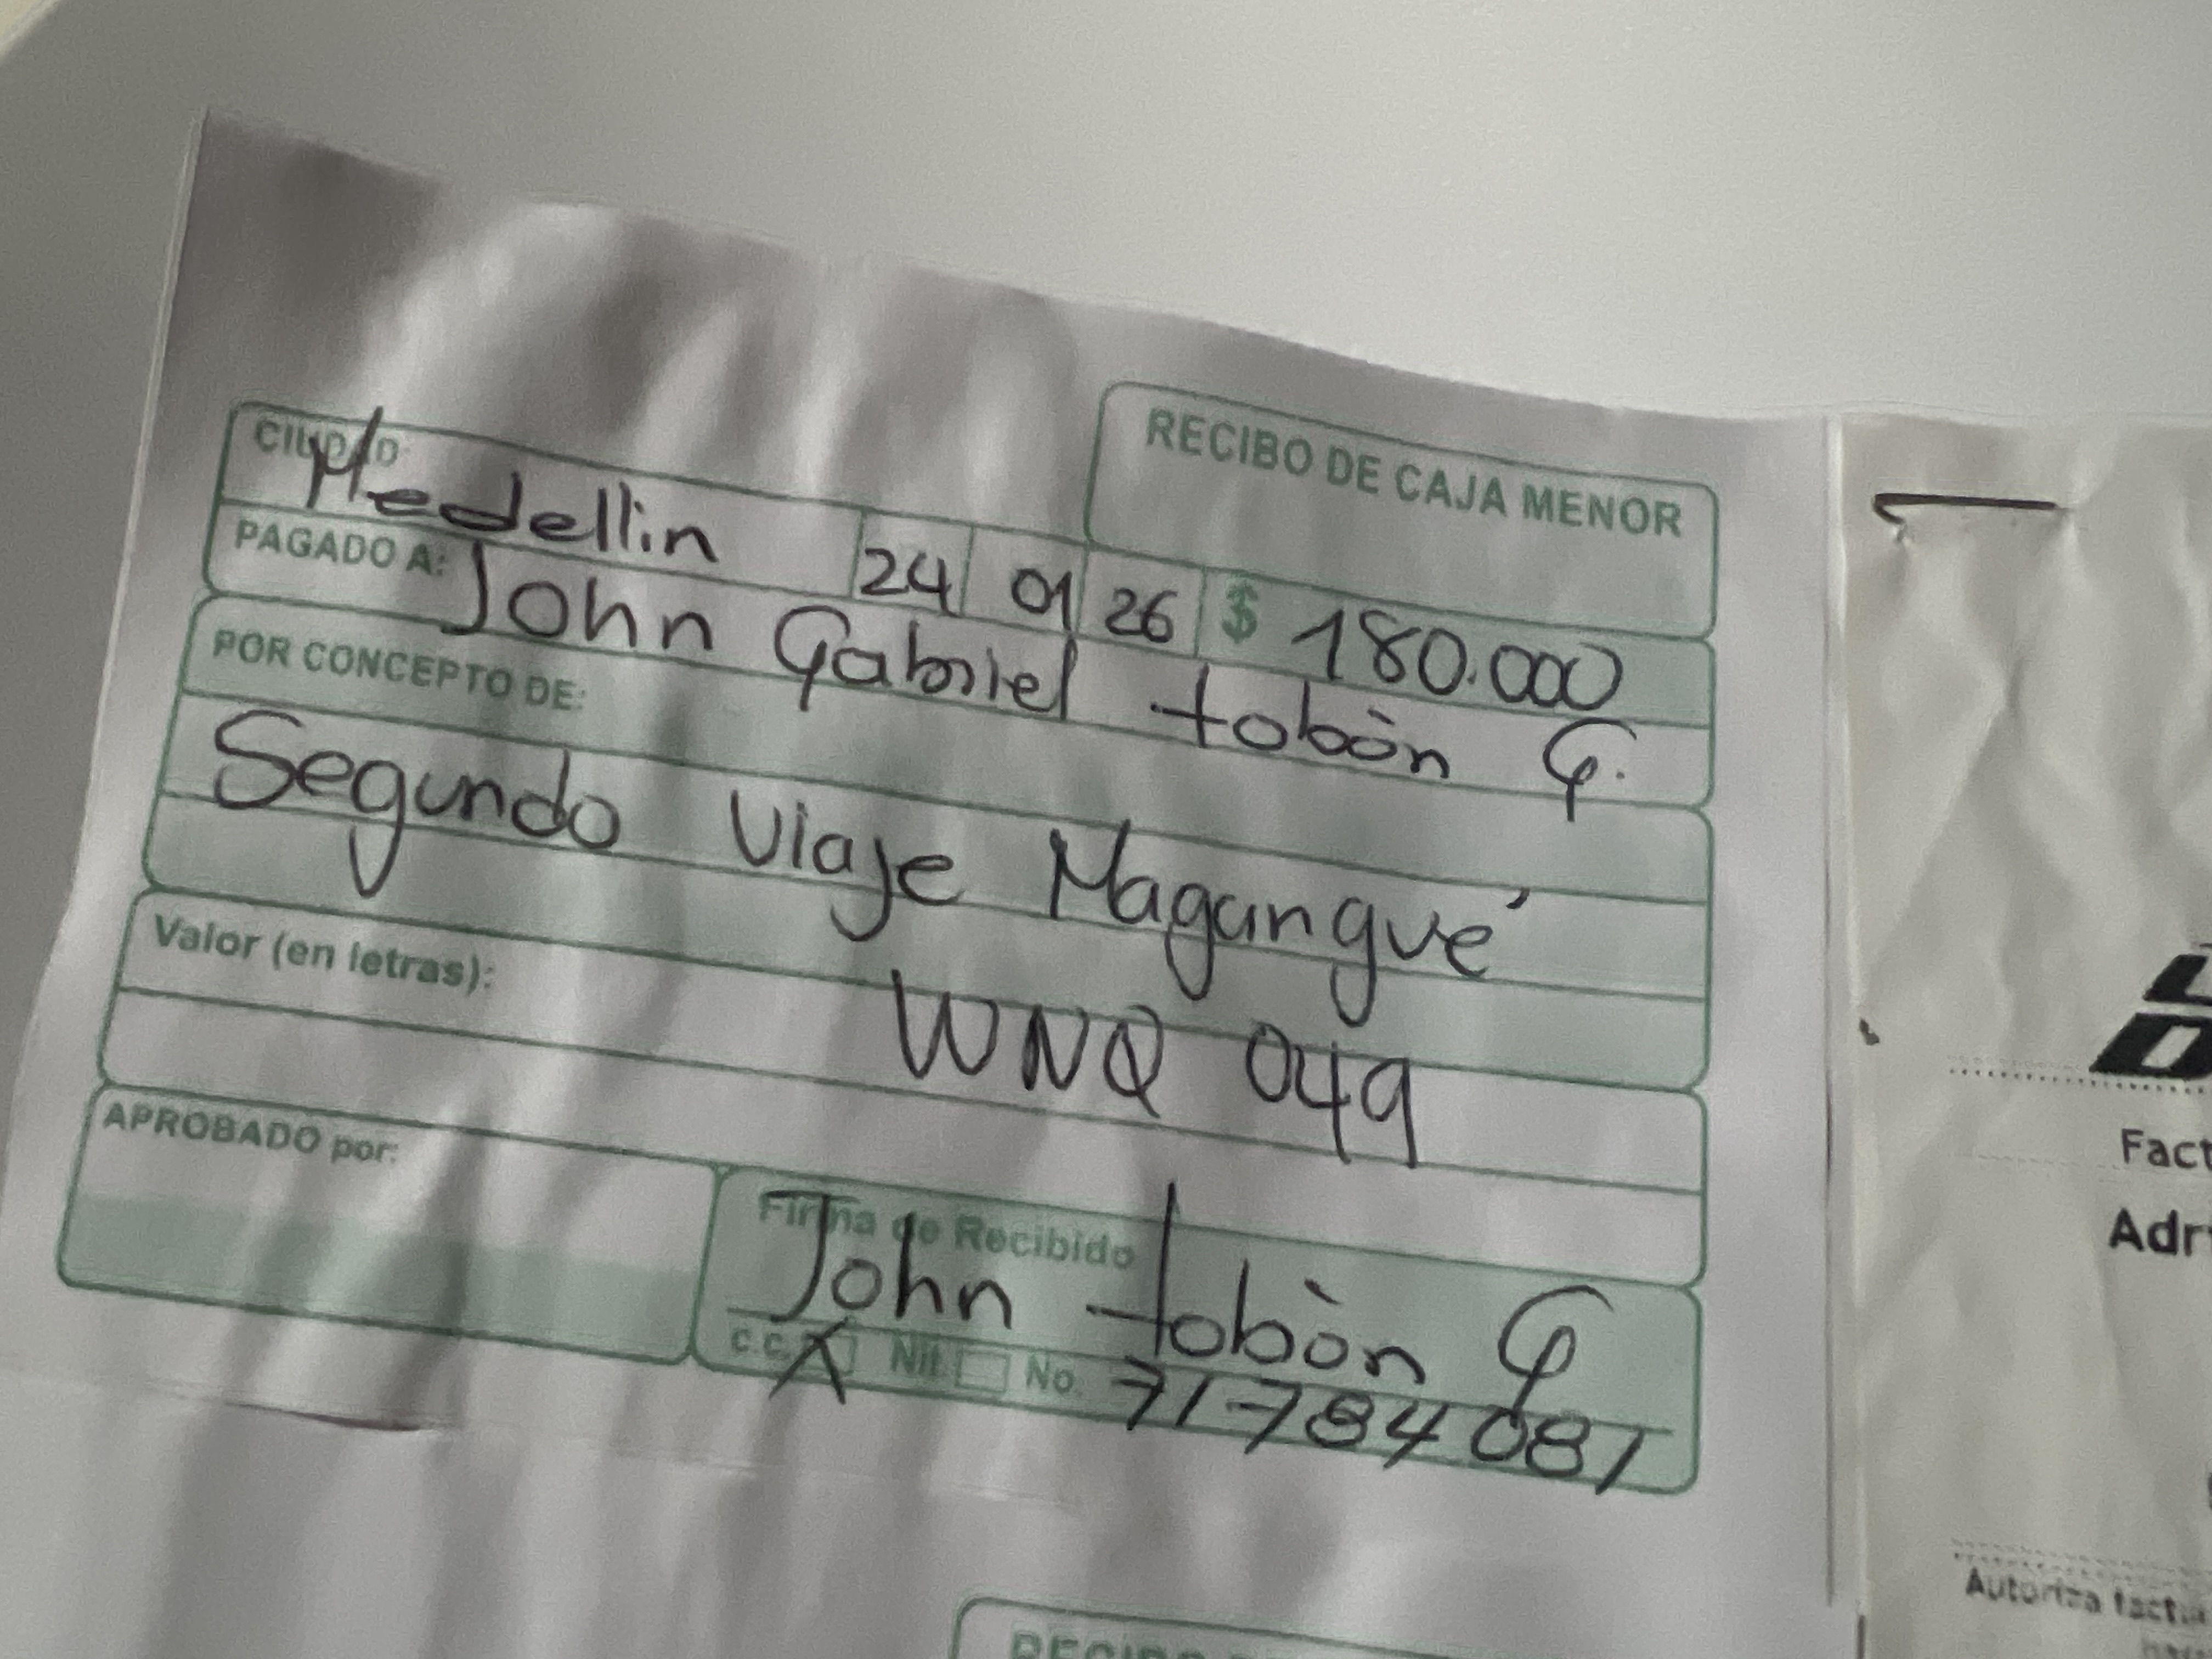 RECIBO DE CAJA MENOR
CIUDAD:
Medellin 24 01 26 $ 180.000
PAGADO A: John Gabriel tobòn G.
POR CONCEPTO DE:
Segundo Viaje Magangué
Valor (en letras):
WNQ 049
APROBADO por:
Firma de Recibido
John tobòn G
C.C. X Nit. No. 71784081
Autoriza